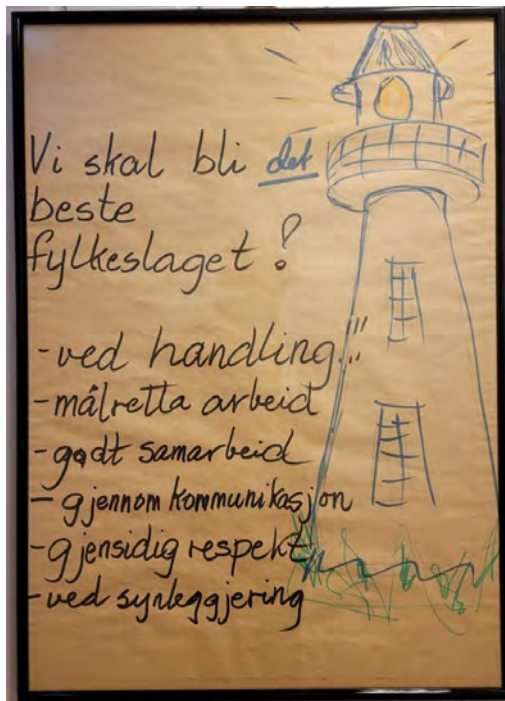 Vi skal bli det
beste
fylkeslaget!
-ved handling!!!
-målretta arbeid
-godt samarbeid
-gjennom kommunikasjon
-gjensidig respekt
-ved synleggjering